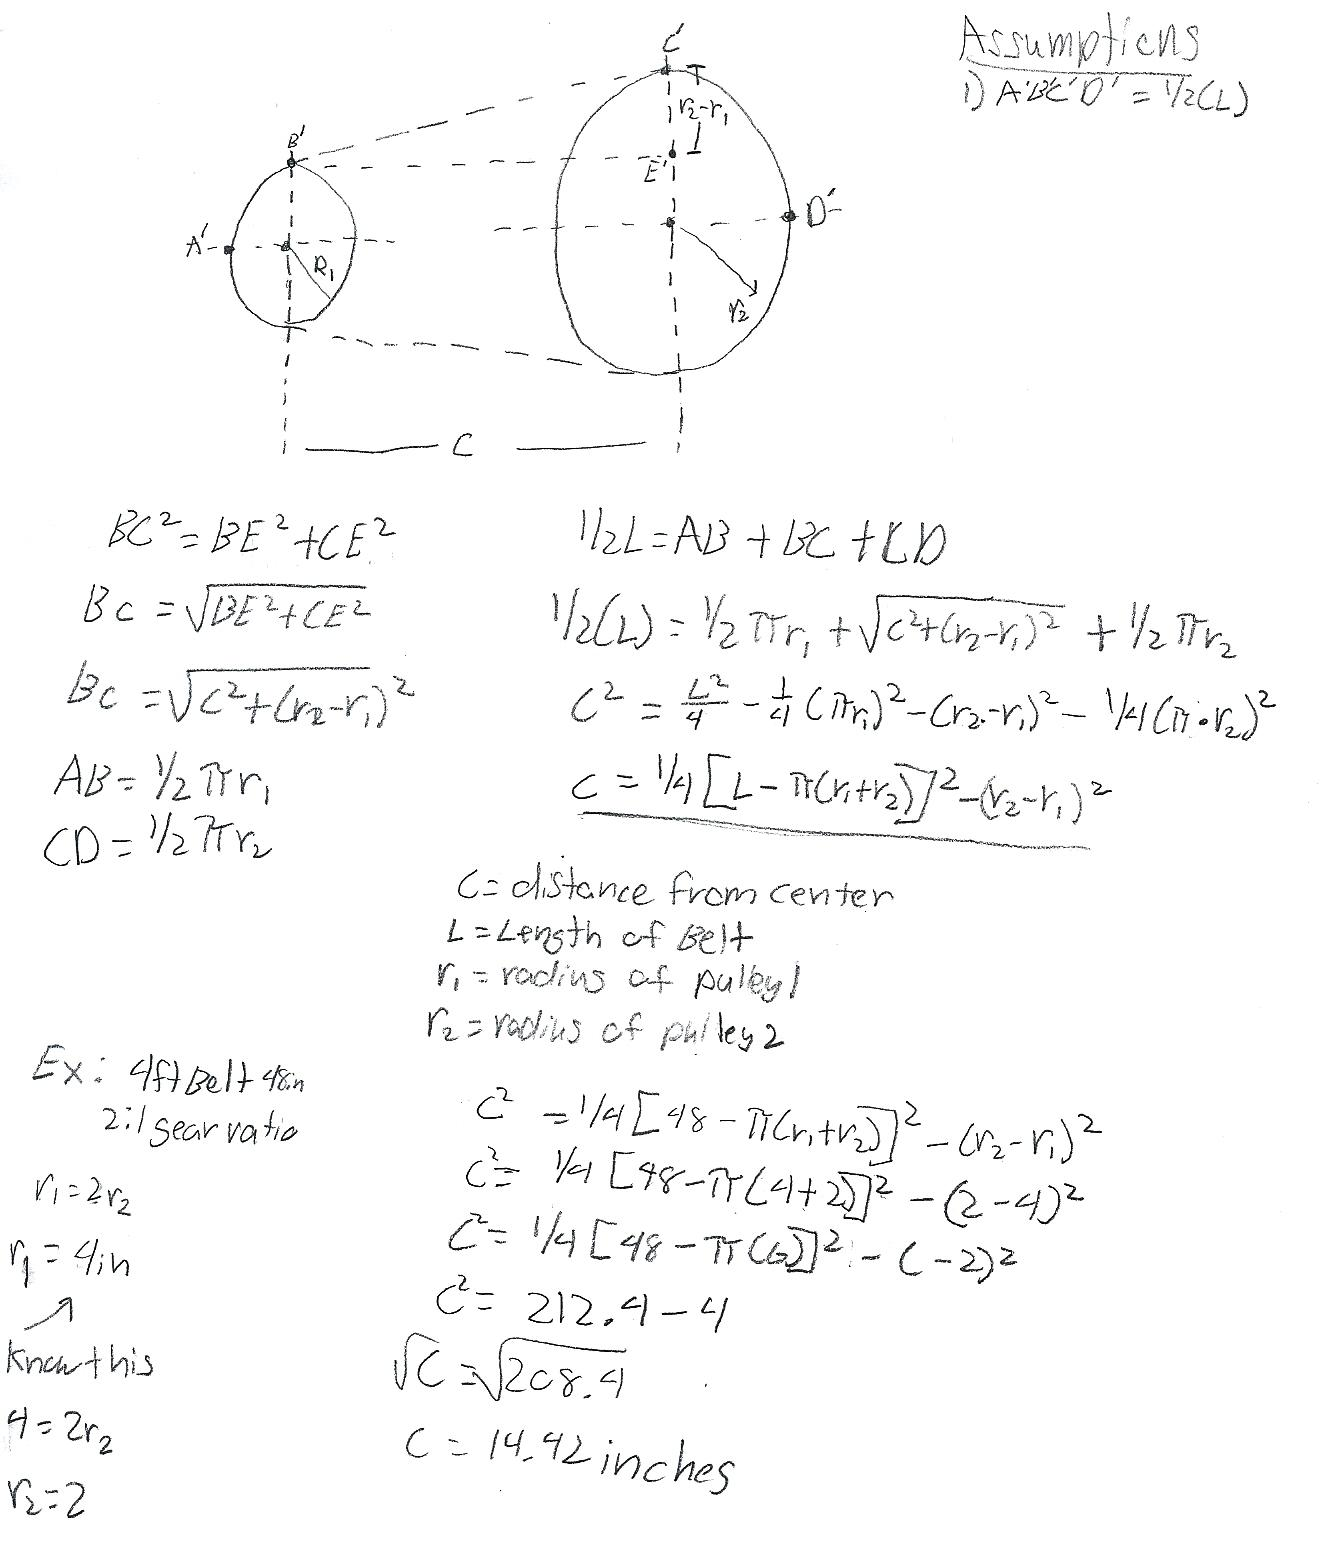 Assumptions
1) A'B'C'D' = 1/2(L)
C'
r2-r1
B'
E'
A'
D'
R1
r2
C
BC² = BE² + CE²
BC = √BE² + CE²
BC = √C² + (r2-r1)²
AB = 1/2 πr1
CD = 1/2 πr2
1/2L = AB + BC + CD
1/2(L) = 1/2 πr1 + √C²+(r2-r1)² + 1/2 πr2
C² = L²/4 - 1/4 (πr1)² - (r2-r1)² - 1/4(π·r2)²
C = 1/4 [L - π(r1+r2)]² - (r2-r1)²
C = distance from center
L = Length of Belt
r1 = radius of pulley 1
r2 = radius of pulley 2
Ex: 4ft Belt 48in
2:1 gear ratio
r1 = 2r2
r1 = 4in
Know this
4 = 2r2
r2 = 2
C² = 1/4 [48 - π(r1+r2)]² - (r2-r1)²
C² = 1/4 [48 - π(4+2)]² - (2-4)²
C² = 1/4 [48 - π(6)]² - (-2)²
C² = 212.4 - 4
√C = √208.4
C = 14.42 inches